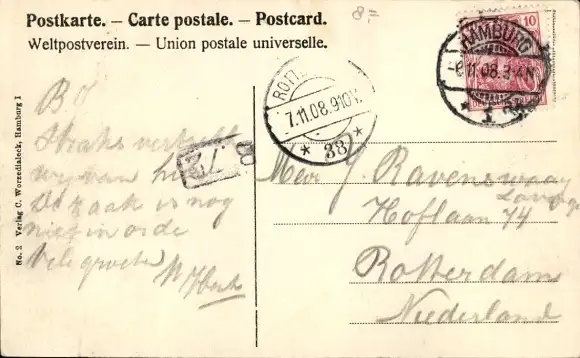 8.=
Postkarte. — Carte postale. — Postcard.
Weltpostverein. — Union postale universelle.
10
HAMBURG
-6.11.08.3-4N
* 1 *
ROTT
7.11.08.9-10V.
* 38 *
72
No. 2 Verlag C. Worzedialeck, Hamburg I
Straks
wij van
De zaak is nog
niet in orde
Vele groeten
Mevr J. Ravenswaay
Hoflaan 74
Rotterdam
Niederland